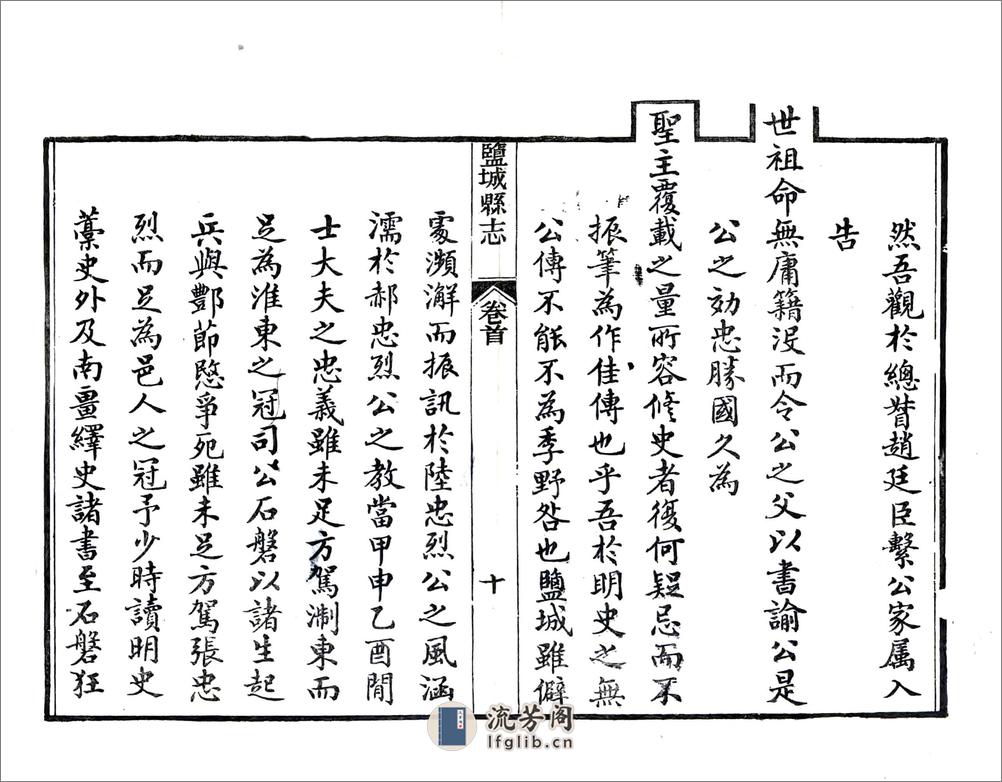 然吾觀於總督趙廷臣繫公家属入
告
世祖命無庸籍没而令公之父以書諭公是
公之効忠勝國久為
聖主覆載之量所容修史者復何疑忌而不
振筆為作佳傳也乎吾於明史之無
公傳不能不為季野咎也鹽城雖僻
鹽城縣志
卷首
十
處瀕澥而振訊於陸忠烈公之風涵
濡於郝忠烈公之教當甲申乙酉間
士大夫之忠義雖未足方駕淛東而
足為淮東之冠司公石磐以諸生起
兵與酆節愍爭死雖未足方駕張忠
烈而足為邑人之冠予少時讀明史
藁史外及南畺繹史諸書至石磐狂
流芳阁
lfglib.cn